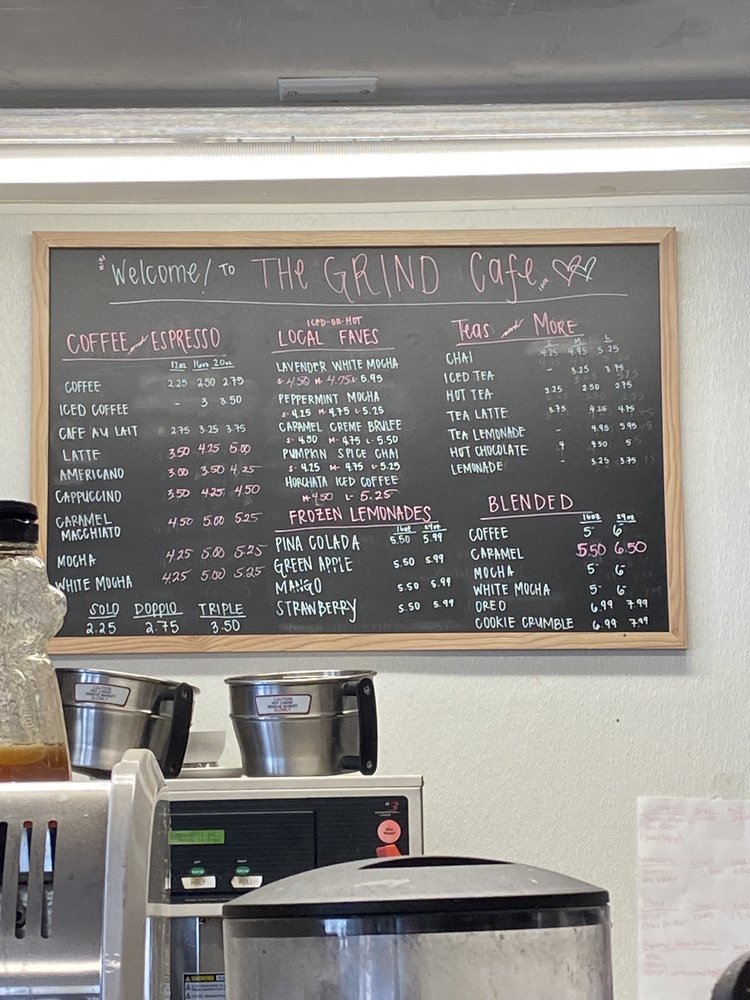 Welcome! TO THE GRIND Cafe
COFFEE and ESPRESSO
12oz 16oz 20oz
COFFEE 2.25 2.50 2.75
ICED COFFEE - 3 3.50
CAFE AU LAIT 2.75 3.25 3.75
LATTE 3.50 4.25 5.00
AMERICANO 3.00 3.50 4.25
CAPPUCCINO 3.50 4.25 4.50
CARAMEL
MACCHIATO 4.50 5.00 5.25
MOCHA 4.25 5.00 5.25
WHITE MOCHA 4.25 5.00 5.25
SOLO DOPPIO TRIPLE
2.25 2.75 3.50
ICED-OR-HOT
LOCAL FAVES
LAVENDER WHITE MOCHA
S- 4.50 M- 4.75 L- 5.95
PEPPERMINT MOCHA
S- 4.25 M- 4.75 L- 5.25
CARAMEL CREME BRULEE
S- 4.50 M- 4.75 L- 5.50
PUMPKIN SPICE CHAI
S- 4.25 M- 4.75 L- 5.25
HORCHATA ICED COFFEE
M- 4.50 L- 5.25
FROZEN LEMONADES
16oz 24oz
PINA COLADA 5.50 5.99
GREEN APPLE 5.50 5.99
MANGO 5.50 5.99
STRAWBERRY 5.50 5.99
Teas and MORE
S M L
CHAI 4.25 4.95 5.25
ICED TEA - 3.25 3.75
HOT TEA 2.25 2.50 2.75
TEA LATTE 3.75 4.25 4.75
TEA LEMONADE - 4.95 5.95
HOT CHOCOLATE 4 4.50 5
LEMONADE - 3.25 3.75
BLENDED
16oz 24oz
COFFEE 5- 6-
CARAMEL 5.50 6.50
MOCHA 5- 6-
WHITE MOCHA 5- 6-
OREO 6.99 7.99
COOKIE CRUMBLE 6.99 7.99
CAUTION
CAUTION
BREW
BREW
HALF
FULL
WARNING